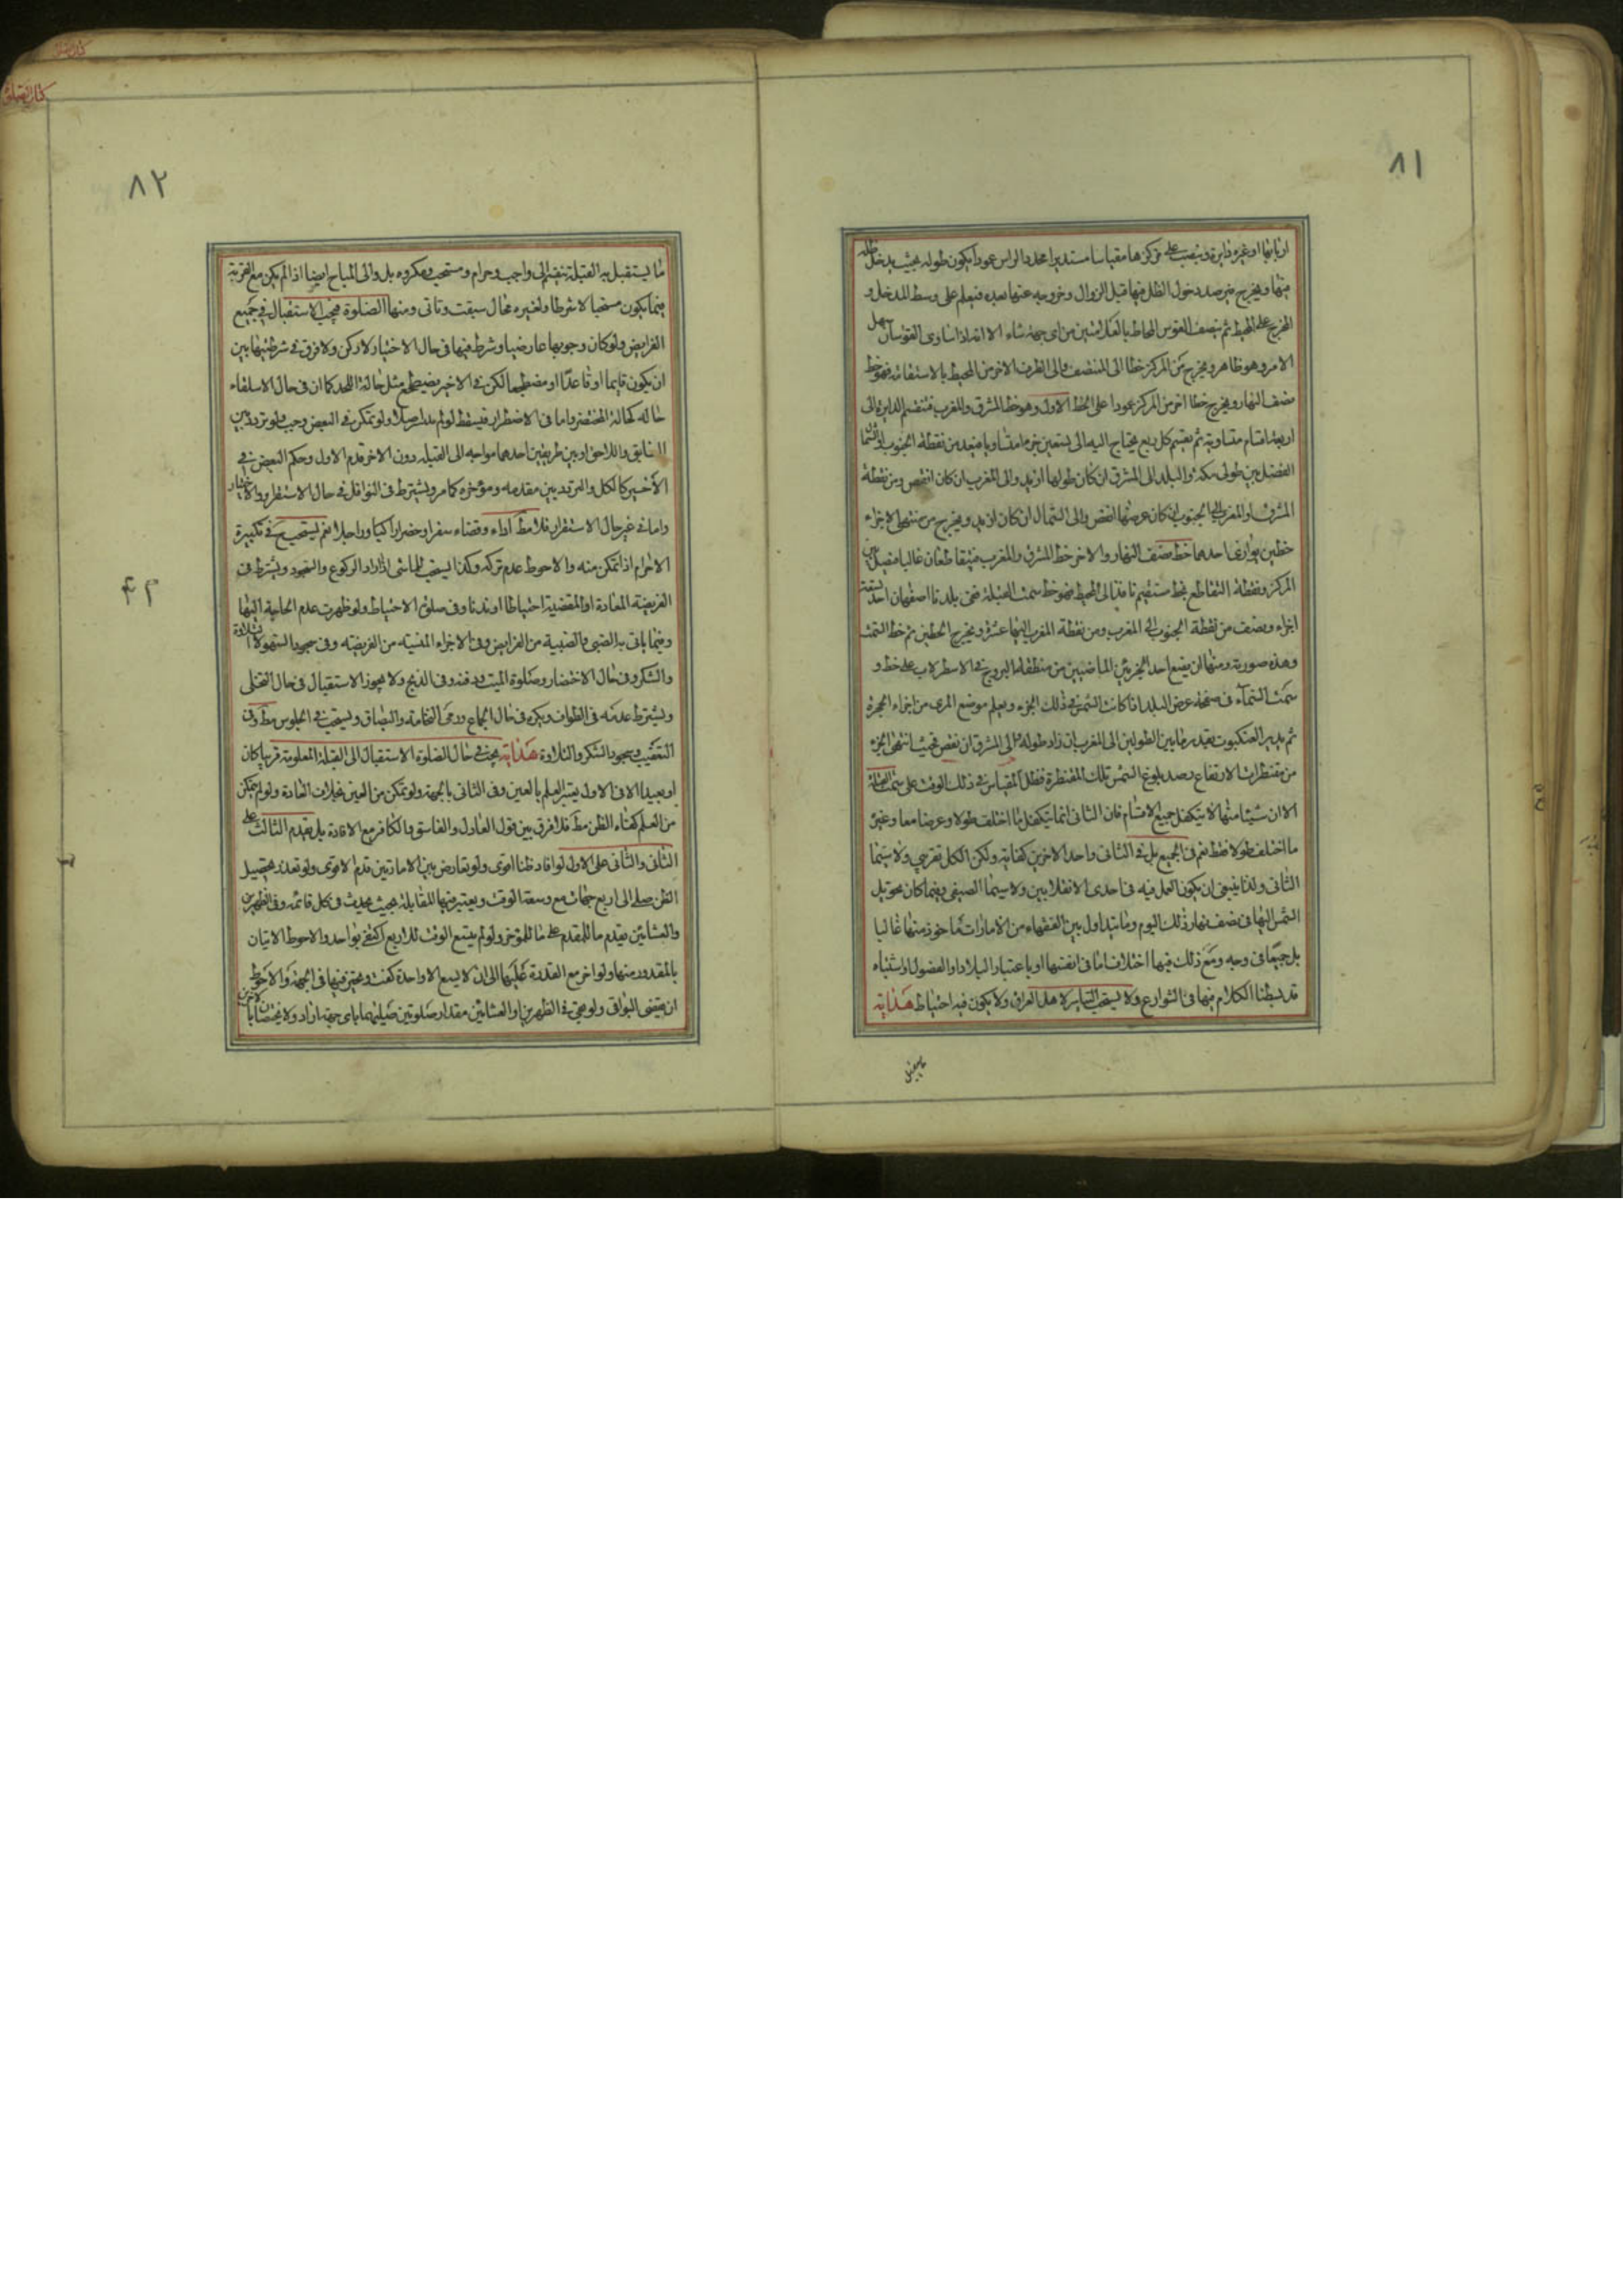 ٨١
منها ويخرج فيرصد دخول الظل فيها قبل الزوال وخروجه عنها بعده فيعلم على وسط المدخل و
المخرج على المحيط ثم ينصف القوس المحاط بالعلامتين من اى جهة شاء الا انه اذا تساوى القوسان سهل
الامر وهو ظاهر ويخرج من المركز خطا الى المنتصف والى الطرف الاخر من المحيط بالاستقامة فهو خط
نصف النهار ويخرج خطا اخر من المركز عمودا على الخط الاول وهو خط المشرق والمغرب فتنقسم الدايرة الى
اربعة اقسام متساوية ثم يقسم كل ربع يحتاج اليه الى تسعين جزءا متساويا فيعد من نقطة الجنوب او الشمال
الفضل بين طولى مكة والبلد الى المشرق ان كان طولها ازيد والى المغرب ان كان انقص ومن نقطة
المشرق او المغرب الى الجنوب ان كان عرضها انقص والى الشمال ان كان ازيد ويخرج من منتهى الاجزاء
خطين يوازى احدهما خط نصف النهار والاخر خط المشرق والمغرب فيتقاطعان غالبا فيصل بين
المركز ونقطة التقاطع بخط مستقيم نافذ الى المحيط فهو خط سمت القبلة ففى بلدنا اصفهان يعد تسعة
اجزاء ونصف من نقطة الجنوب الى المغرب ومن نقطة المغرب اليها عشر ويخرج الخطين ثم خط السمت
وهذه صورته ومنها ان يضع احد الجزئين الماضيين من منطقة البروج فى الاسطرلاب على خط و
سمت السماء فى صفحة عرض البلد اذا كانت الشمس فى ذلك الجزء ويعلم موضع المرى من اجزاء الحجرة
ثم يدير العنكبوت بقدر ما بين الطولين الى المغرب ان زاد طوله والى المشرق ان نقص فحيث انتهى الجزء
من مقنطرات الارتفاع رصد بلوغ الشمس تلك المقنطرة فظل المقياس فى ذلك الوقت على سمت القبلة
الا ان شيئا منها لا يتكفل جميع الاقسام فان الثانى انما يتكفل ما اختلف طولا وعرضا معا وغيره
ما اختلف طولا فقط نعم فى الجميع بل فى الثانى واحد الاخرين كفاية ولكن الكل تقريبى ولا سيما
الثانى ولذا ينبغى ان يكون العمل فيه فى احدى الانقلابين ولا سيما الصيفى وفيما كان تحويل
الشمس اليها فى نصف نهار ذلك اليوم وما يتداول بين الفقهاء من الامارات ماخوذ منها غالبا
بل جميعا فى وجه ومع ذلك فيها اختلاف اما فى انفسها او باعتبار البلاد او الفصول او اشتباه
قد بسطنا الكلام فيها فى الشوارع ولا يستحب التياسر لاهل العراق ولا يكون فيه احتياط هداية
٨٢
ما يستقبل به القبلة ينقسم الى واجب وحرام ومستحب ومكروه بل والى المباح ايضا اذا لم يكن مع القربة
فيما يكون مستحبا لا شرطا ولغيره محال سبقت وتاتى ومنها الصلوة فيجب الاستقبال فى جميع
الفرايض ولو كان وجوبها عارضيا وشرط فيها فى حال الاختيار لا ركن ولا فرق فى شرطيتها بين
ان يكون قايما او قاعدا او مضطجعا لكن فى الاخير يضطجع مثل حالة اللحد كما ان فى حال الاستلقاء
حاله كحالة المحتضر واما فى الاضطرار فيسقط لو لم يقدر اصلا ولو تمكن فى البعض وجب ولو تردد بين
السابق واللاحق او بين طريقين احدهما مواجه الى القبلة دون الاخر قدم الاول وحكم البعض فى
الاخير كالكل والتردد بين مقدمه ومؤخره كما مر ويشترط فى النوافل فى حال الاستقرار والاختيار
واما فى غير حال الاستقرار فلا مط اداء وقضاء سفرا وحضرا راكبا وراجلا نعم يستحب فى تكبيرة
الاحرام اذا تمكن منه والاحوط عدم تركه وكذا يستحب للماشى اذا اراد الركوع والسجود ويشترط فى
الفريضة المعادة او المقضية احتياطا او ندبا وفى صلوة الاحتياط ولو ظهرت عدم الحاجة اليها
وفيما ياتى به الصبى والصبية من الفرايض وفى الاجزاء المنسية من الفريضة وفى سجود السهو لا التلاوة
والشكر وفى حال الاحتضار وصلوة الميت ودفنه وفى الذبح ولا يجوز الاستقبال فى حال التخلى
ويشترط عدمه فى الطواف ويكره فى حال الجماع ورمى النخامة والبصاق ويستحب فى الجلوس مط وفى
التعقيب وسجود الشكر والتلاوة هداية يجب فى حال الصلوة الاستقبال الى القبلة المعلومة قريبا كان
او بعيدا الا فى الاول يعتبر العلم بالعين وفى الثانى بالجهة ولو تمكن من العين بخلاف العادة ولو لم يتمكن
من العلم كفاه الظن مط فلا فرق بين قول العادل والفاسق والكافر مع الافادة بل يقدم الثالث على
الثانى والثانى على الاول لو افاد ظنا اقوى ولو تعارض بين الامارتين قدم الاقوى ولو تعذر تحصيل
الظن صلى الى اربع جهات مع وسعة الوقت ويعتبر فيها المقابلة بحيث يحدث فى كل قائمة وفى الظهرين
والعشائين يقدم ما للمقدم على ما للمؤخر ولو لم يتسع الوقت للاربع اكتفى بواحد والاحوط الاتيان
بالمقدور منها ولو اخر مع القدرة عليها الى ان لا يسع الا واحدة كفت ويتخير فيها فى الجهة والاحوط
ان يقضى البواقى ولو بقى فى الظهرين او العشائين مقدار صلوتين صليهما باى جهة اراد ولا يختصان